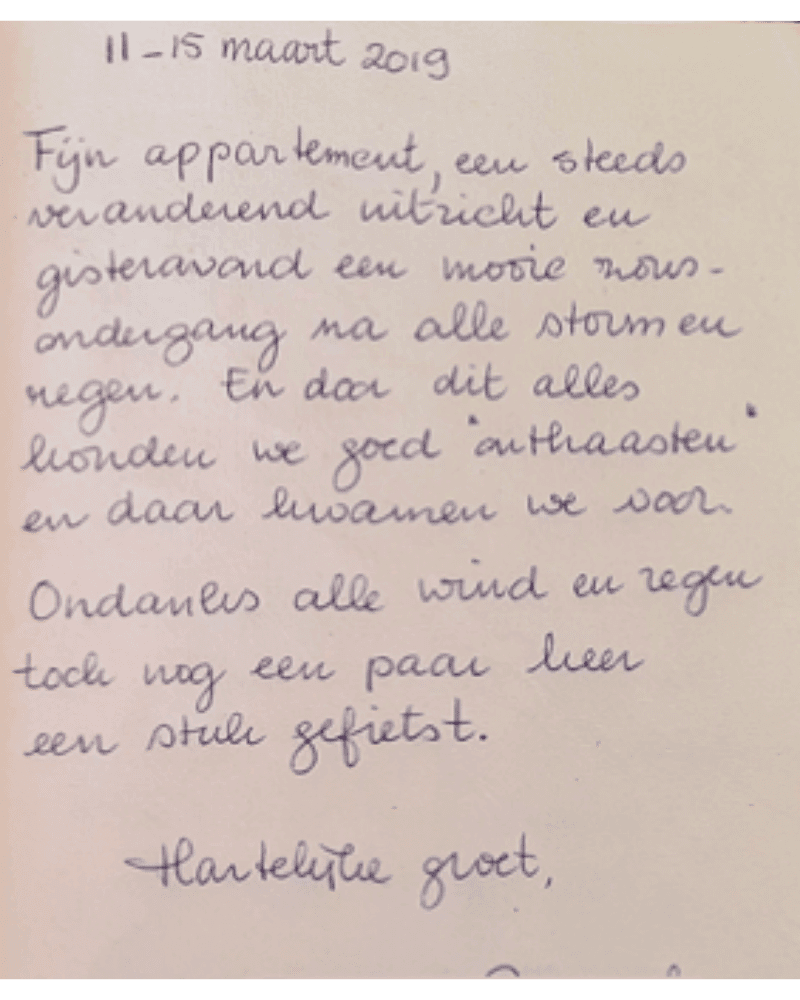 11-15 maart 2019
Fijn appartement, een steeds
veranderend uitzicht en
gisteravond een mooie zons-
ondergang na alle storm en
regen. En door dit alles
konden we goed "onthaasten"
en daar kwamen we voor.
Ondanks alle wind en regen
toch nog een paar keer
een stuk gefietst.
Hartelijke groet,